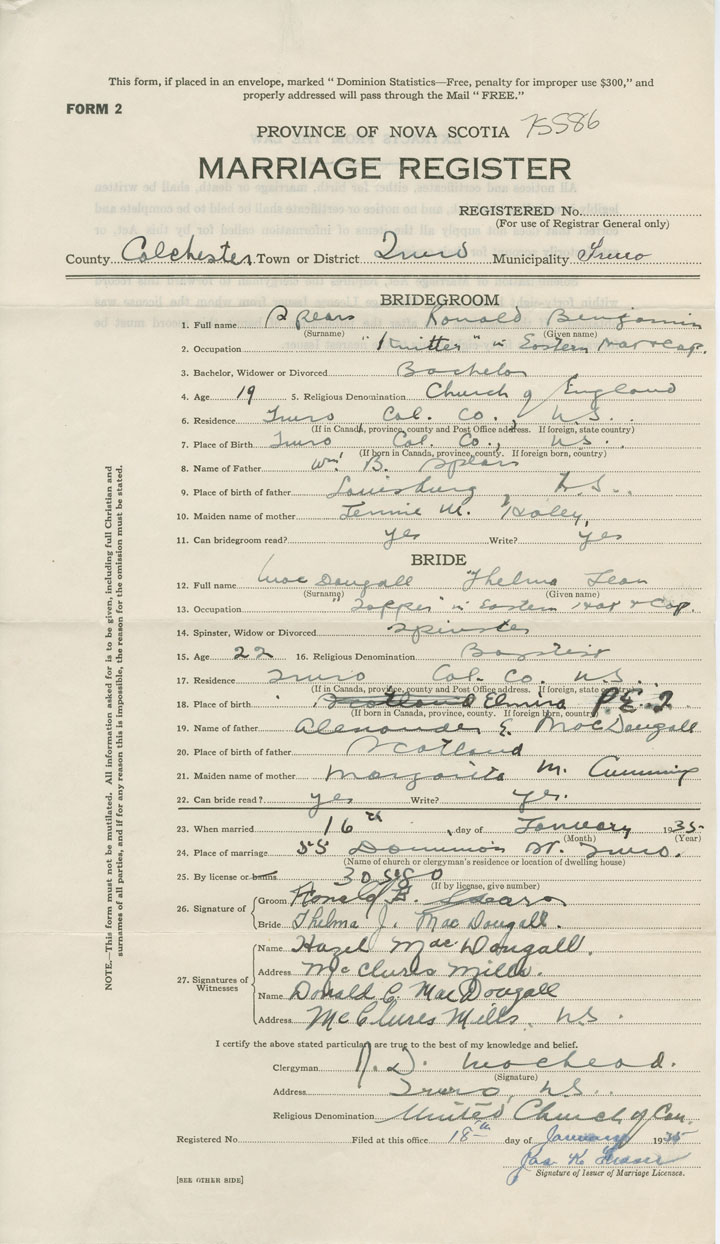 This form, if placed in an envelope, marked " Dominion Statistics—Free, penalty for improper use $300," and
properly addressed will pass through the Mail " FREE."
FORM 2
PROVINCE OF NOVA SCOTIA 75586
MARRIAGE REGISTER
REGISTERED No.
(For use of Registrar General only)
County Colchester Town or District Truro Municipality Truro
BRIDEGROOM
1. Full name Spears Ronald Benjamin
(Surname) (Given name)
2. Occupation "Knitter" in Eastern Hat & Cap.
3. Bachelor, Widower or Divorced Bachelor
4. Age 19 5. Religious Denomination Church of England
6. Residence Truro Col. Co., N.S.
(If in Canada, province, county and Post Office address. If foreign, state country)
7. Place of Birth Truro Col. Co., N.S.
(If born in Canada, province, county. If foreign born, country)
8. Name of Father Wm. B. Spears
9. Place of birth of father Louisburg, N.S.
10. Maiden name of mother Jennie M.
11. Can bridegroom read? yes Write? yes
BRIDE
12. Full name MacDougall Thelma Jean
(Surname) (Given name)
13. Occupation in Eastern Hat & Cap.
14. Spinster, Widow or Divorced Spinster
15. Age 22 16. Religious Denomination Baptist
17. Residence Truro Col. Co. N.S.
(If in Canada, province, county and Post Office address. If foreign, state country)
18. Place of birth Scotland Elmira P.E.I
(If born in Canada, province, county. If foreign born, country)
19. Name of father Alexander E. MacDougall
20. Place of birth of father Scotland
21. Maiden name of mother Margarita M. Cumming
22. Can bride read? yes Write? yes.
23. When married 16th day of January 1935
(Month) (Year)
24. Place of marriage 55 Dominion St. Truro.
(Name of church or clergyman's residence or location of dwelling house)
25. By license or banns
(If by license, give number)
26. Signature of
Groom Ronald B. Spears
Bride Thelma J. MacDougall.
27. Signatures of Witnesses
Name Hazel MacDougall.
Address McClures Mills.
Name Donald C. MacDougall
Address McClures Mills, N.S.
I certify the above stated particulars are true to the best of my knowledge and belief.
Clergyman
(Signature)
Address Truro, N.S.
Religious Denomination United Church of Can.
Registered No. Filed at this office 18th day of January 1935
Jas. K. Fraser
[SEE OTHER SIDE] Signature of Issuer of Marriage Licenses.
NOTE.—This form must not be mutilated. All information asked for is to be given, including full Christian and
surnames of all parties, and if for any reason this is impossible, the reason for the omission must be stated.